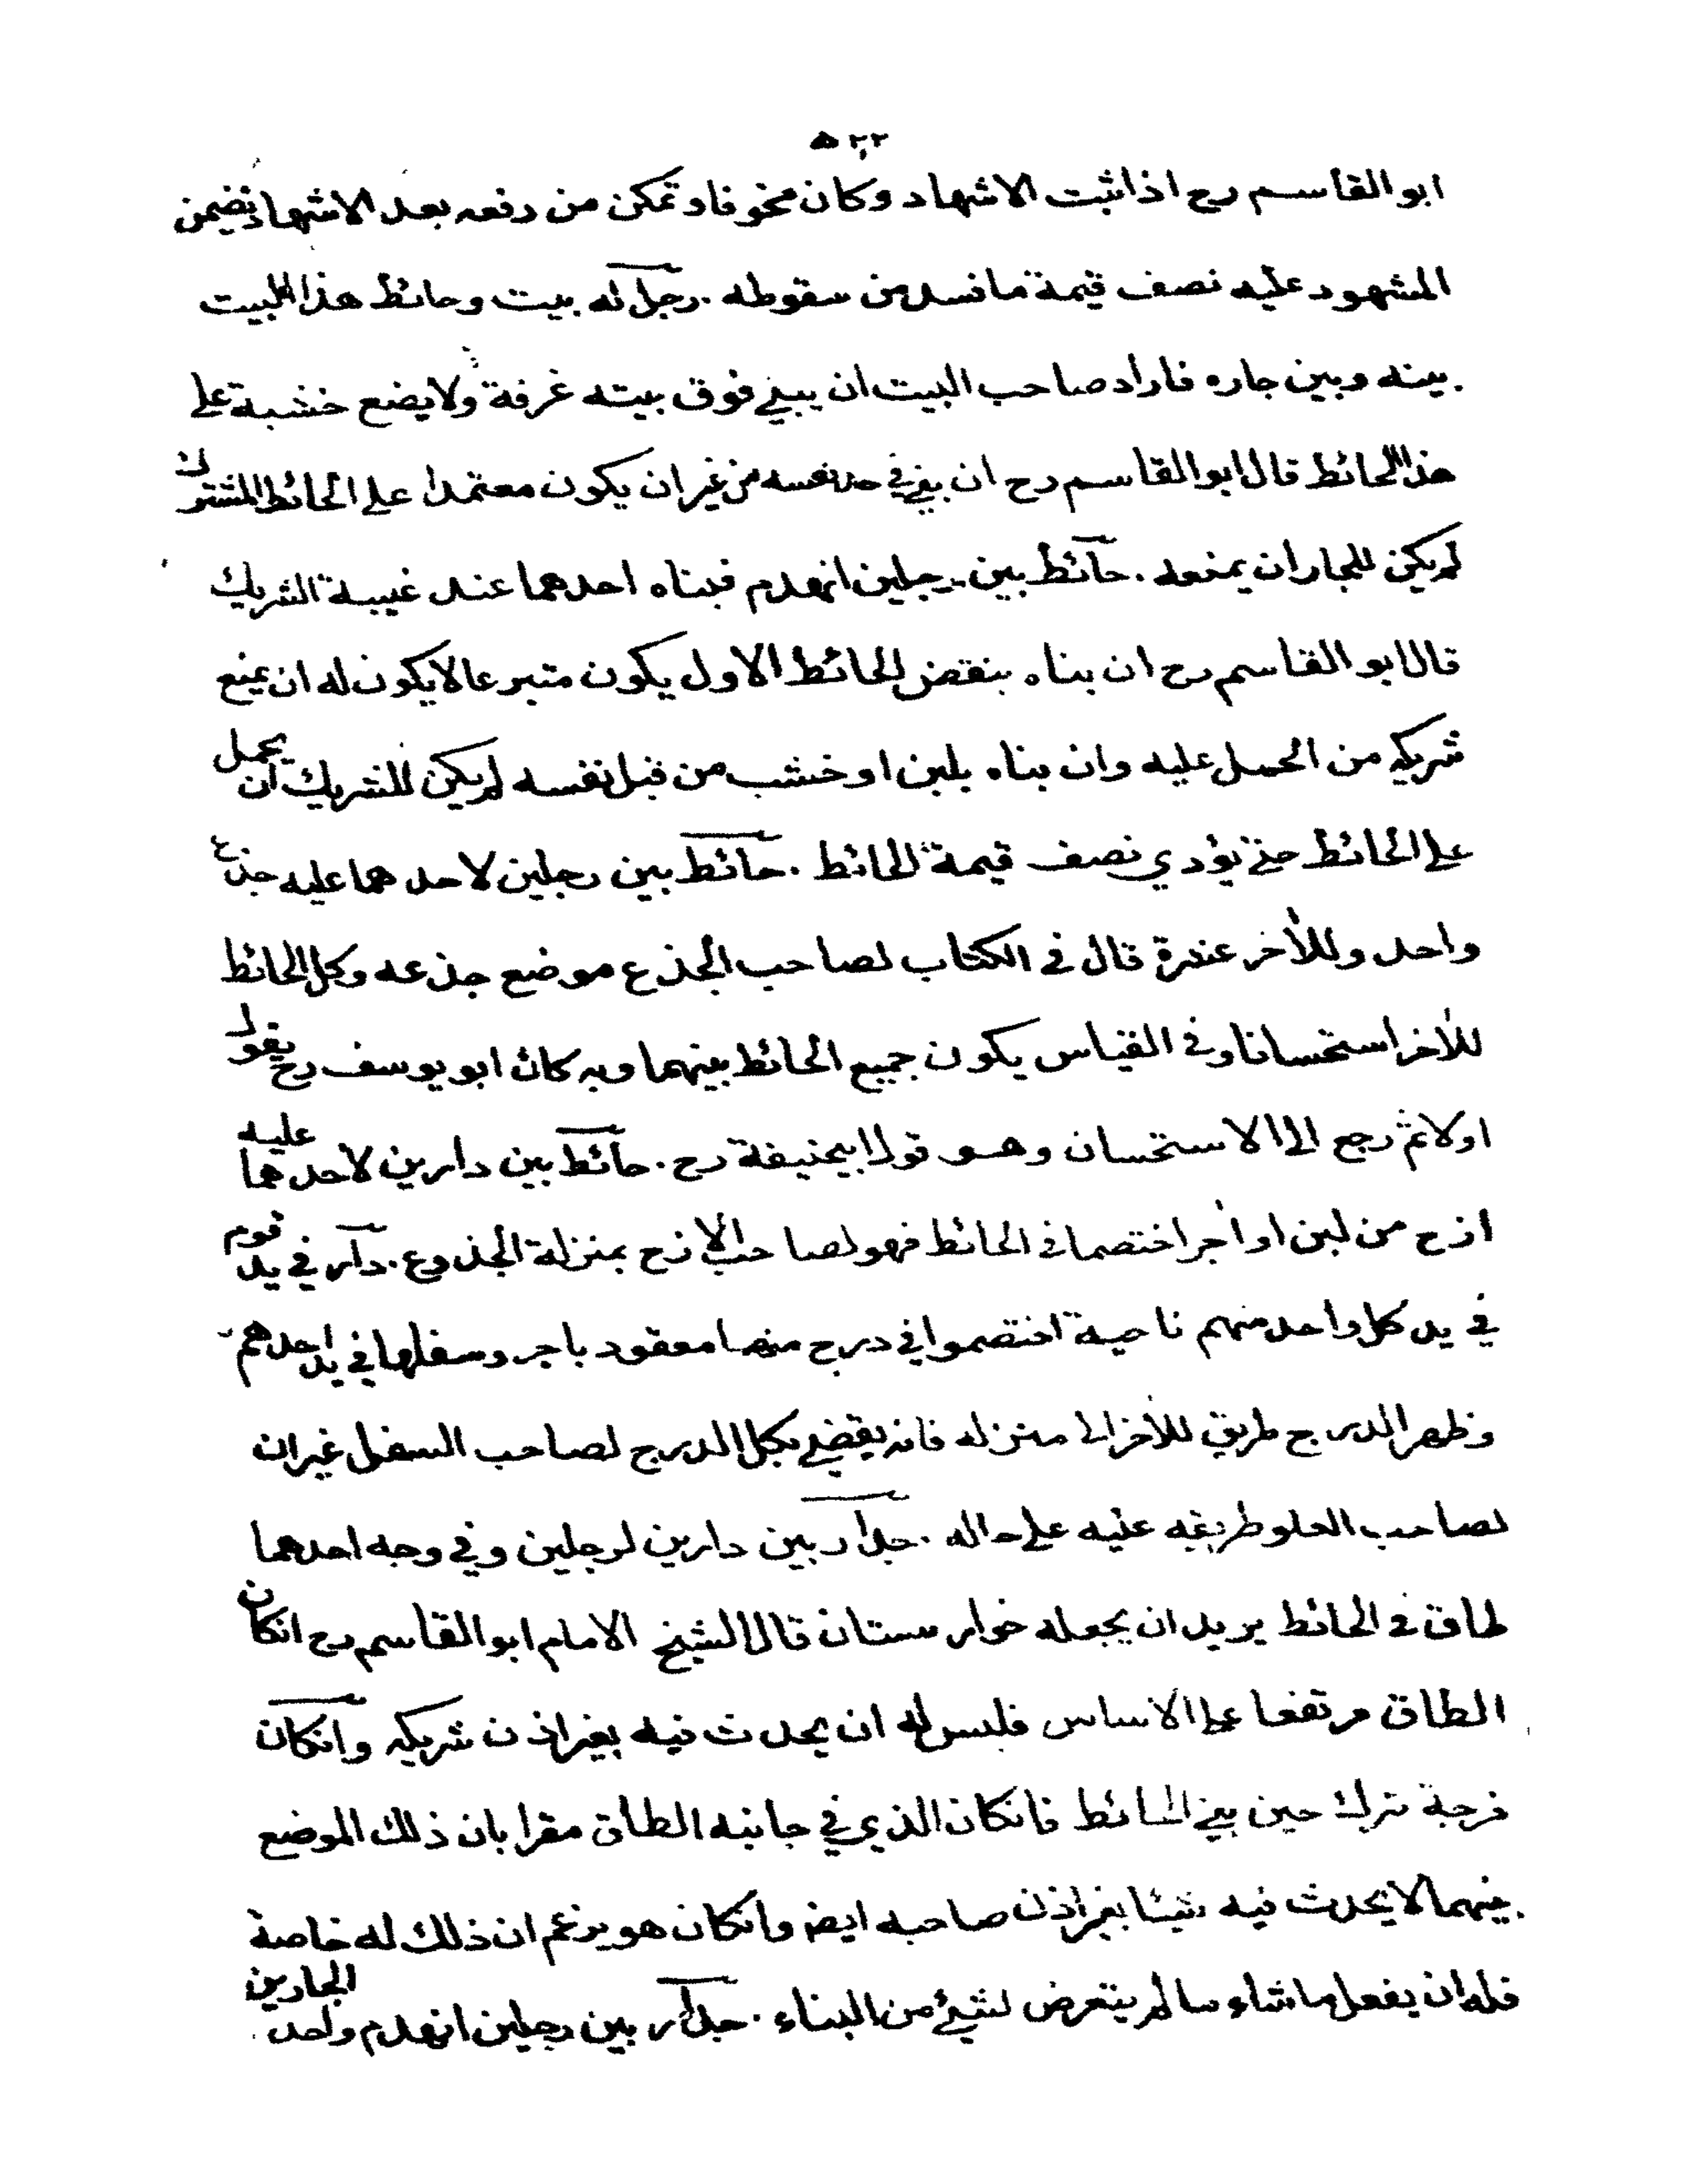 ٥٢٢
ابو القاسم رح اذا ثبت الاشهاد وكان مخوفا وتمكن من رفعه بعد الاشهاد يضمن
المشهود عليه نصف قيمة ما فسد من سقوطه . رجل له بيت وحائط هذا البيت
بينه وبين جاره فاراد صاحب البيت ان يبني فوق بيته غرفة ولا يضع خشبة على
هذا الحائط قال ابو القاسم رح ان بني في حد نفسه من غير ان يكون معتمدا على الحائط المشترك
لم يكن للجار ان يمنعه . حائط بين رجلين انهدم فبناه احدهما عند غيبة الشريك
قال ابو القاسم رح ان بناه بنقض الحائط الاول يكون متبرعا لا يكون له ان يمنع
شريكه من الحمل عليه وان بناه بلبن او خشب من قبل نفسه لم يكن للشريك ان يحمل
على الحائط حتى يؤدي نصف قيمة الحائط . حائط بين رجلين لاحدهما عليه جذع
واحد وللآخر عشرة قال في الكتاب لصاحب الجذع موضع جذعه وكل الحائط
للآخر استحسانا وفي القياس يكون جميع الحائط بينهما وبه كان ابو يوسف رح يقول
اولا ثم رجع الى الاستحسان وهو قول ابيحنيفة رح . حائط بين دارين لاحدهما عليه
ازج من لبن او آجر اختصما في الحائط فهو لصاحب الازج بمنزلة الجذوع . دار في يد قوم
في يد كل واحد منهم ناحية اختصموا في درج منها معقود باجر وسفلها في يد احدهم
وظهر الدرج طريق للآخر الى منزله فانه يقضي بكل الدرج لصاحب السفل غير ان
لصاحب العلو طريقه عليه على حاله . جدار بين دارين لرجلين وفي وجه احدهما
طاق في الحائط يريد ان يجعله خوارستان قال الشيخ الامام ابو القاسم رح انكان
الطاق مرتفعا على الاساس فليس له ان يحدث فيه بغير اذن شريكه وانكان
فرجة ترك حين بني الحائط فانكان الذي في جانبه الطاق مقرا بان ذلك الموضع
بينهما لا يحدث فيه شيئا بغير اذن صاحبه ايضا وانكان هو يزعم ان ذلك له خاصة
فله ان يفعل ما شاء ما لم يتعرض لشيئ من البناء . جدار بين رجلين انهدم واحد الجارين